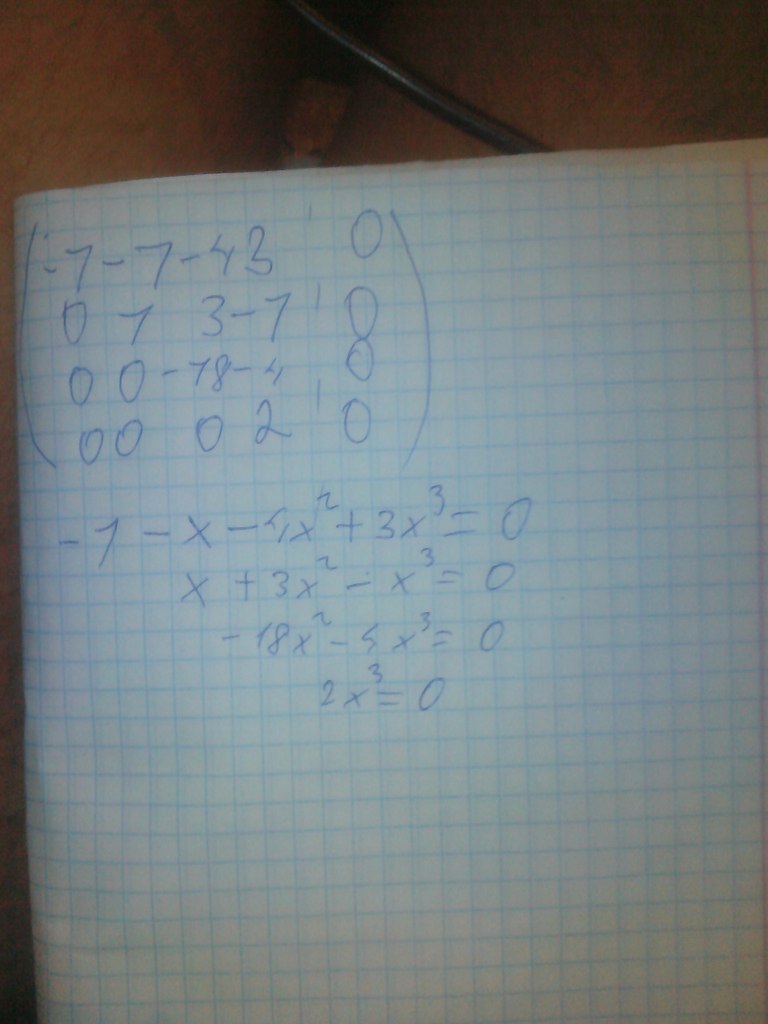 -1 -1 -4 3 | 0
0 1 3 -1 | 0
0 0 -18 -4 0
0 0 0 2 | 0
-1 - x - 4x² + 3x³ = 0
x + 3x² - x³ = 0
-18x² - 4x³ = 0
2x³ = 0